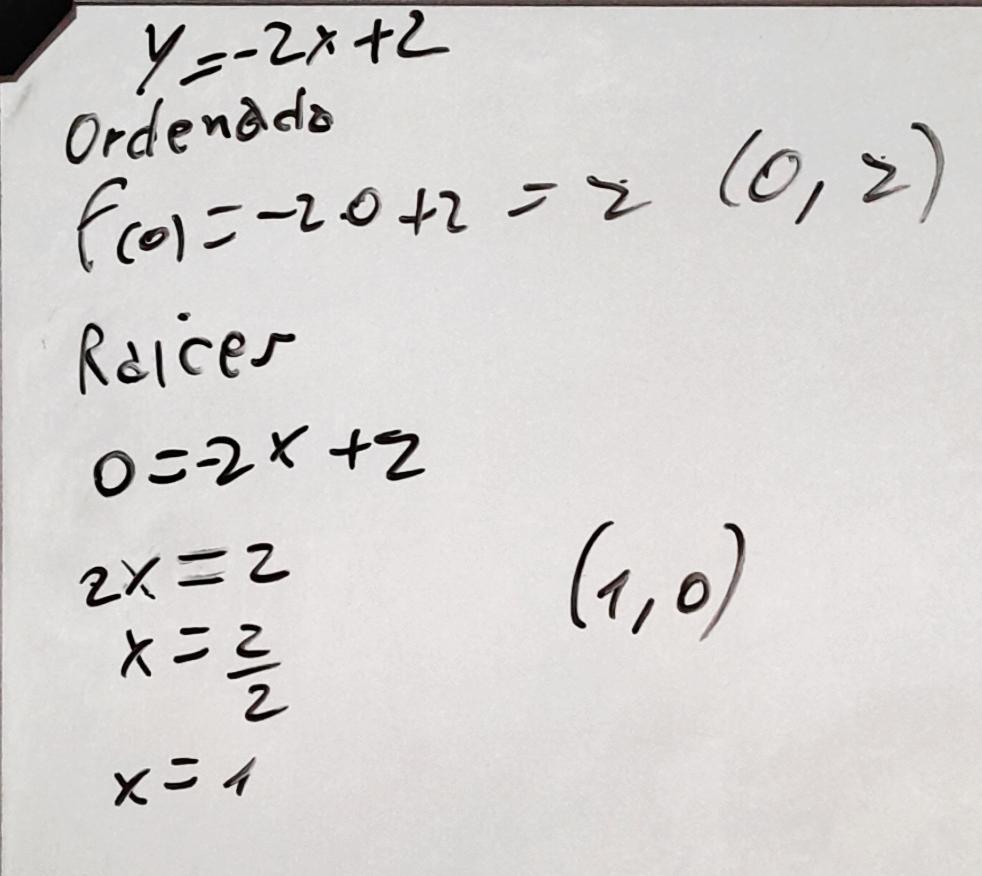 y=-2x+2
Ordenada
f(0)=-2.0+2=2 (0,2)
Raices
0=-2x+2
2x=2 (1,0)
x=2/2
x=1